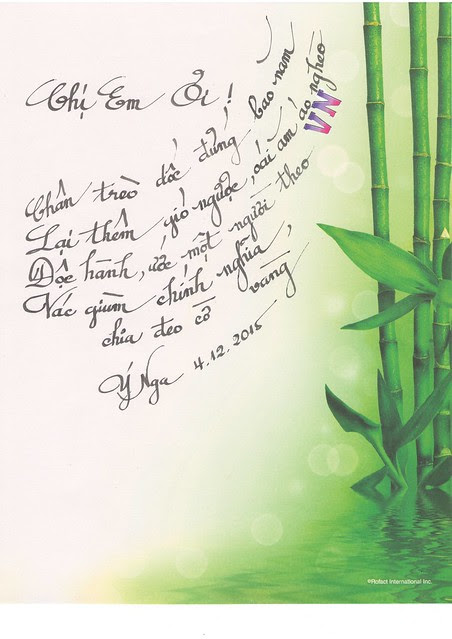 Chị Em Ơi!
Chân trèo dốc đứng bao năm
Lại thêm gió ngược, oái ăm áo nghèo
VN
Độc hành, ước một người theo
Vác giùm chính nghĩa,
chia đeo cờ vàng
Ý Nga 4.12.2015
©Rofact International Inc.